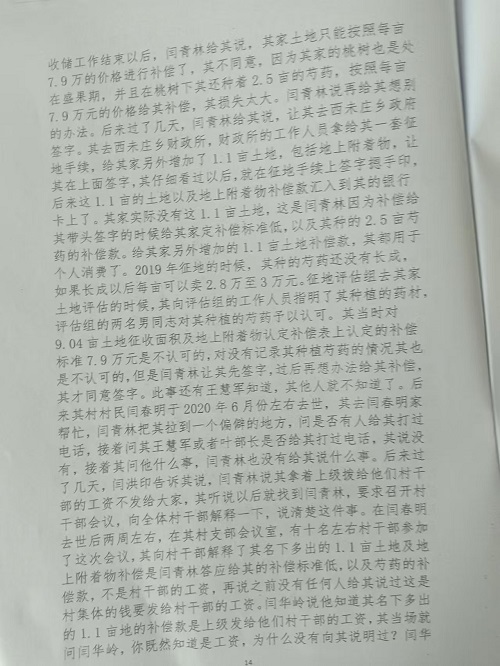 收储工作结束以后，闫青林给其说，其家土地只能按照每亩
7.9万的价格进行补偿了，其不同意，因为其家的桃树也是处
在盛果期，并且在桃树下其还种着2.5亩的芍药，按照每亩
7.9万元的价格给其补偿，其损失太大。闫青林说再给其想别
的办法。后来过了几天，闫青林给其说，让其去西未庄乡政府
签字。其去西未庄乡财政所，财政所的工作人员拿给其一套征
地手续，给其家另外增加了1.1亩土地，包括地上附着物，让
其在上面签字，其仔细看过以后，就在征地手续上签字捺手印，
后来这1.1亩的土地以及地上附着物补偿款汇入到其的银行
卡上了。其家实际没有这1.1亩土地，这是闫青林因为补偿给
其带头签字的时候给其家定补偿标准低，以及其种的2.5亩芍
药的补偿款。给其家另外增加的1.1亩土地补偿款，其都用于
个人消费了。2019年征地的时候，其种的芍药还没有长成，
如果长成以后每亩可以卖2.8万至3万元。征地评估组去其家
土地评估的时候，其向评估组的工作人员指明了其种植的药材，
评估组的两名男同志对其种植的芍药予以认可。其当时对
9.04亩土地征收面积及地上附着物认定补偿表上认定的补偿
标准7.9万元是不认可的，对没有记录其种植芍药的情况其也
是不认可的，但是闫青林让其先签字，过后再想办法给其补偿，
其才同意签字。此事还有王慧军知道，其他人就不知道了。后
来其村村民闫春明于2020年6月份左右去世，其去闫春明家
帮忙，闫青林把其拉到一个偏僻的地方，问是否有人给其打过
电话，接着问其王慧军或者叶部长是否给其打过电话，其说没
有，接着其问他什么事，闫青林也没有给其说什么事。后来过
了几天，闫洪印告诉其说，闫青林说其拿着上级拨给他们村干
部的工资不发给大家，其听说以后就找到闫青林，要求召开村
干部会议，向全体村干部解释一下，说清楚这件事。在闫春明
去世后两周左右，在其村支部会议室，有十名左右村干部参加
了这次会议，其向村干部解释了其名下多出的1.1亩土地及地
上附着物补偿是闫青林答应给其的补偿标准低，以及芍药的补
偿款，不是村干部的工资，再说之前没有任何人给其说过这是
村集体的钱要发给村干部的工资。闫华岭说他知道其名下多出
的1.1亩地的补偿款是上级发给他们村干部的工资，其当场就
问闫华岭，你既然知道是工资，为什么没有向其说明过？闫华
14